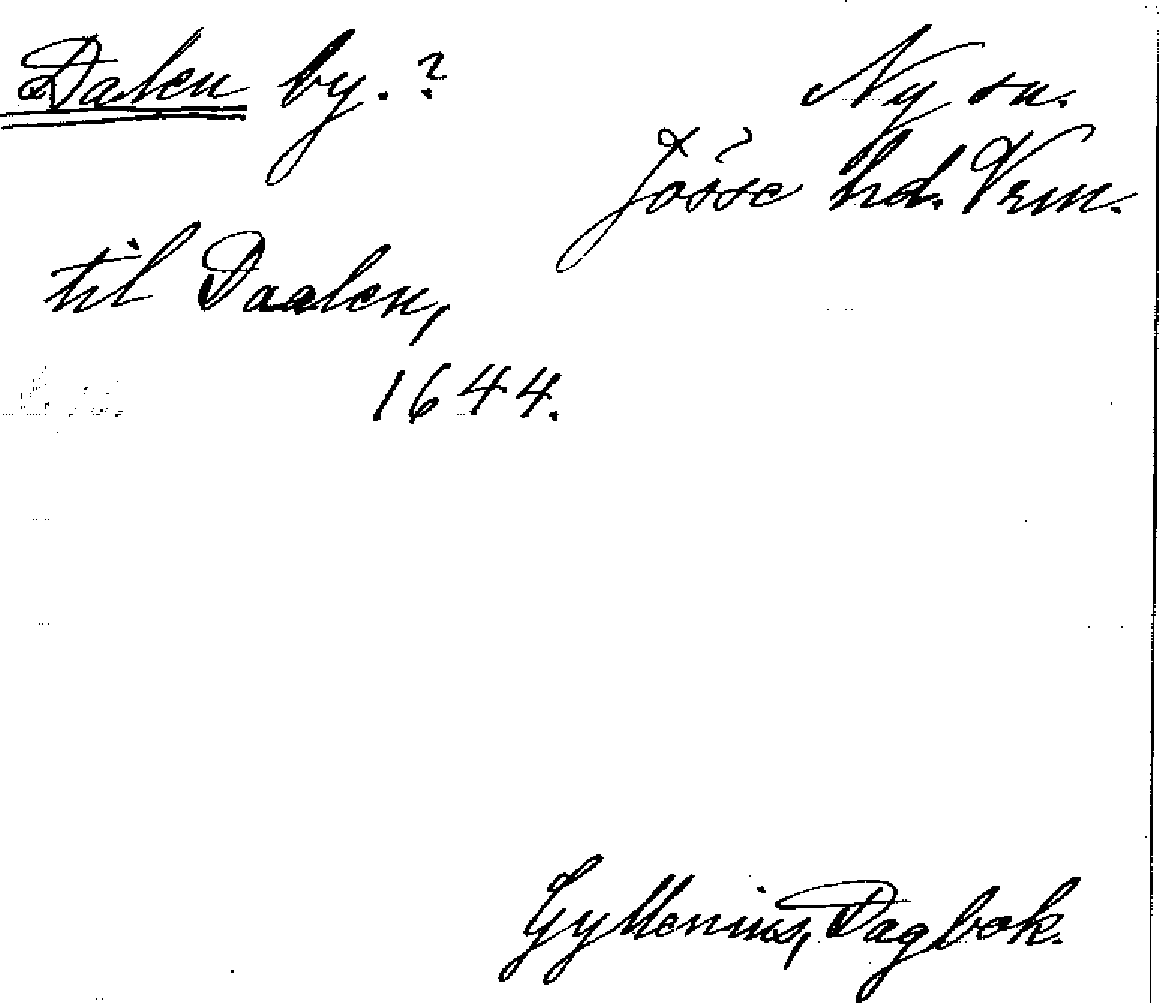 Dalen by.?
Ny sn.
Jösse hd. Vrm.
til Daalen,
1644.
Gyllenius, Dagbok.